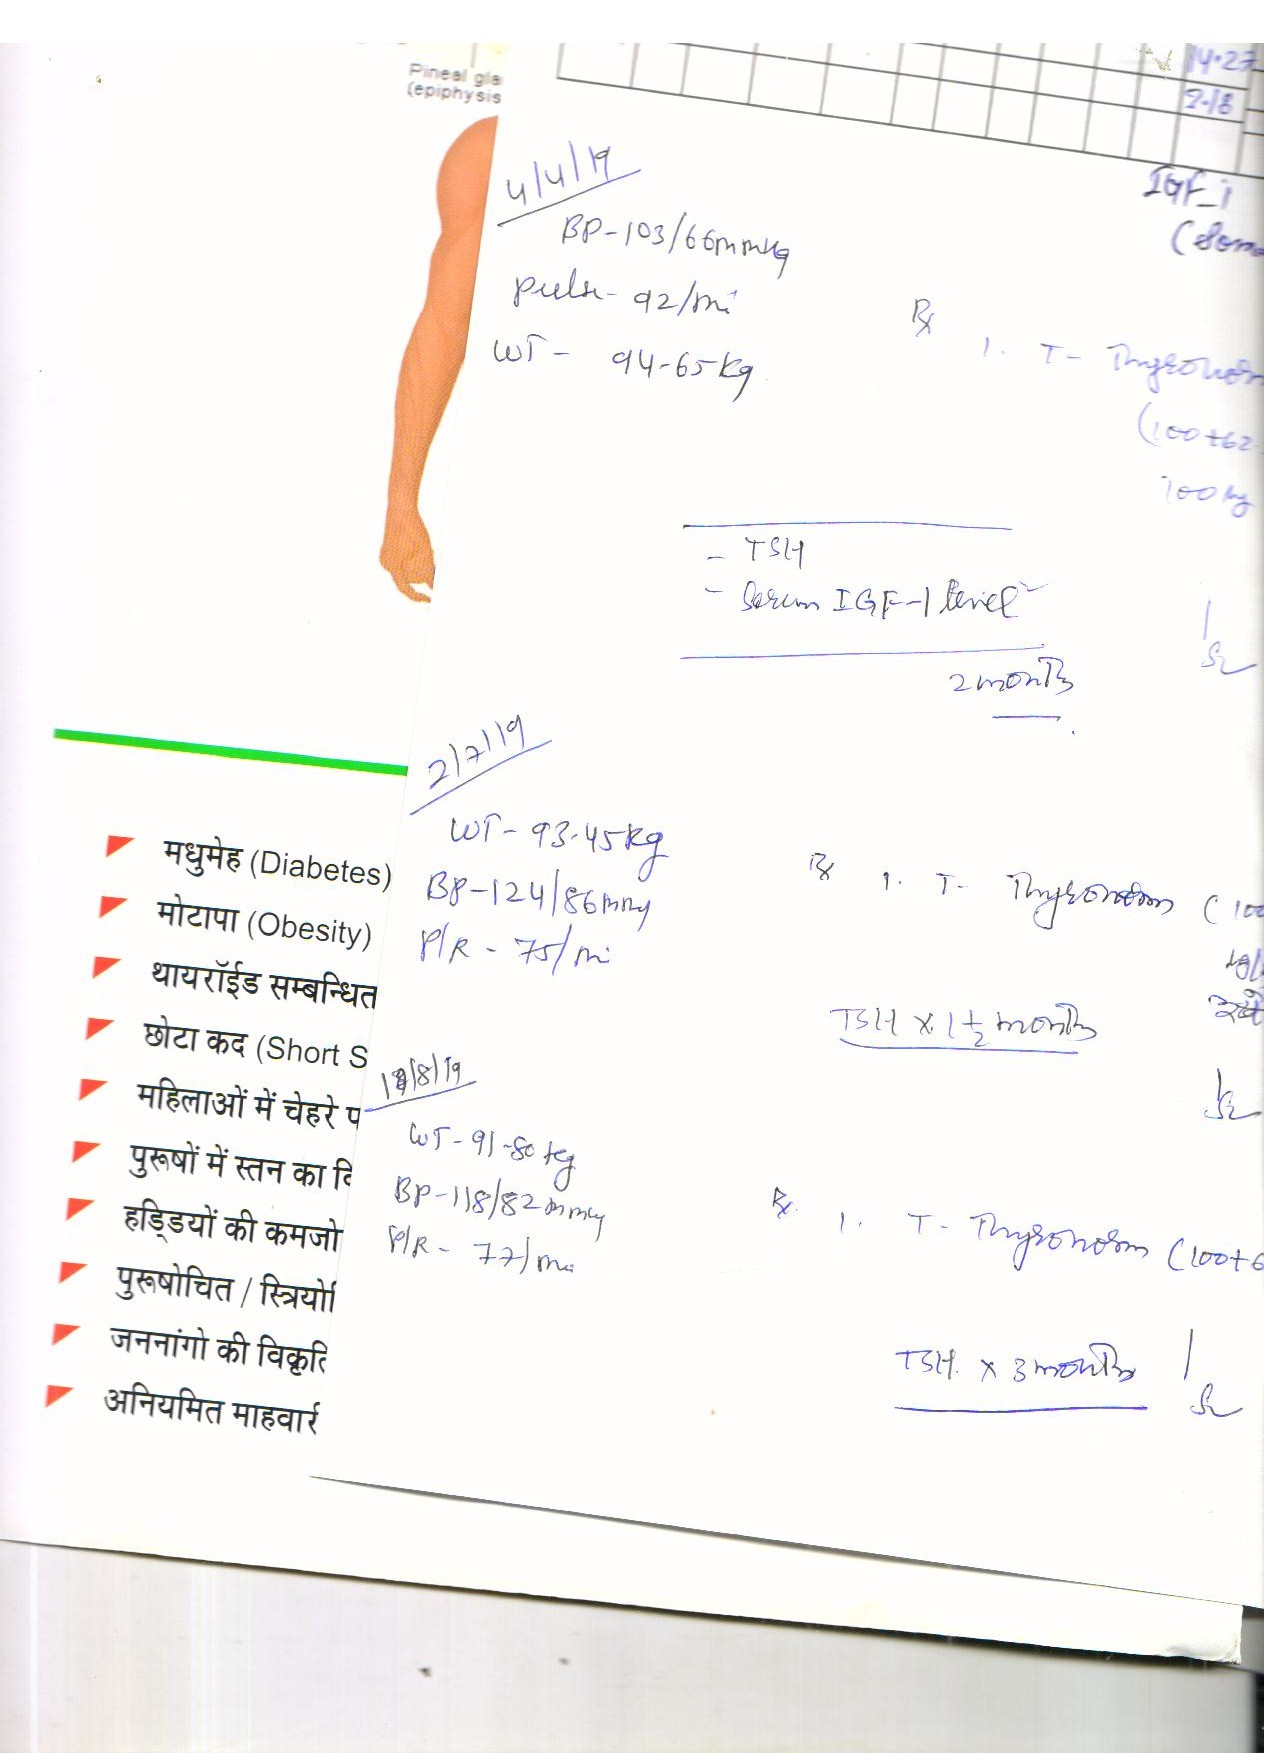 Pineal gla
(epiphysis
14.27
9.18
4/4/19
IGF-1
(Som
BP-103/66mmHg
Pulse- 92/mi
WT - 94.65kg
Rx
1. T- Thyronor
(100+62.
100
- TSH
- Serum IGF-1 level
2 months
2/7/19
WT- 93.45kg
BP-124/86mmHg
P/R - 75/mi
Rx 1. T- Thyronorm (100
TSH x 1 1/2 months
मधुमेह (Diabetes)
मोटापा (Obesity)
थायरॉईड सम्बन्धित
छोटा कद (Short S
महिलाओं में चेहरे प
पुरूषों में स्तन का वि
हड्डियों की कमजो
पुरूषोचित / स्त्रियो
जननांगो की विकृति
अनियमित माहवार
/8/19
WT- 91.80 kg
BP-118/82mmHg
P/R - 77/mi
Rx 1. T- Thyronorm (100+6
TSH. x 3 months